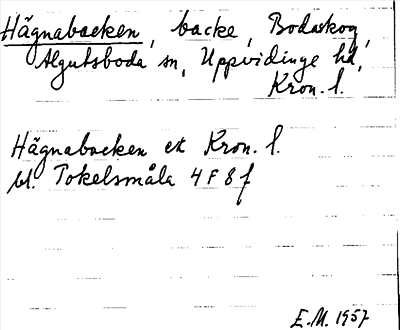 Hägnabacken, backe, Bodaskog,
Algutsboda sn, Uppvidinge hd,
Kron. l.
Hägnabacken ek Kron. l.
bl. Tokelsmåla 4 F 8 f
E.M. 1957